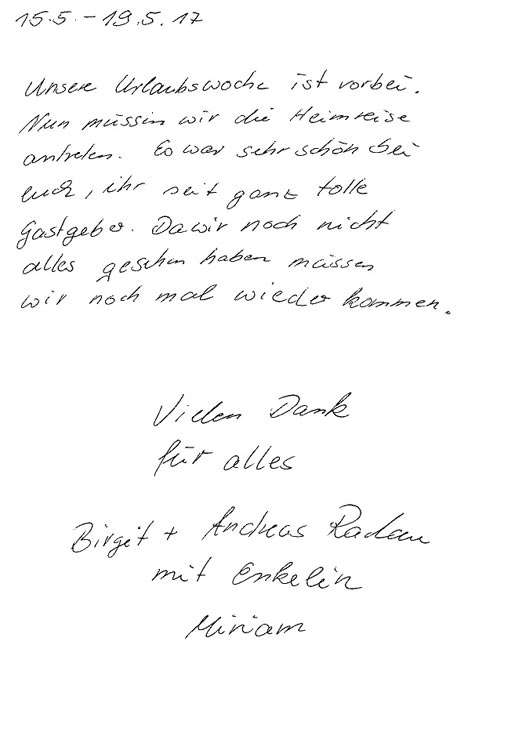 15.5. - 19.5.17
Unsere Urlaubswoche ist vorbei.
Nun müssen wir die Heimreise
antreten. Es war sehr schön bei
euch, ihr seit ganz tolle
Gastgeber. Da wir noch nicht
alles gesehen haben müssen
wir noch mal wieder kommen.
Vielen Dank
für alles
Birgit + Andreas Radau
mit Enkelin
Miriam